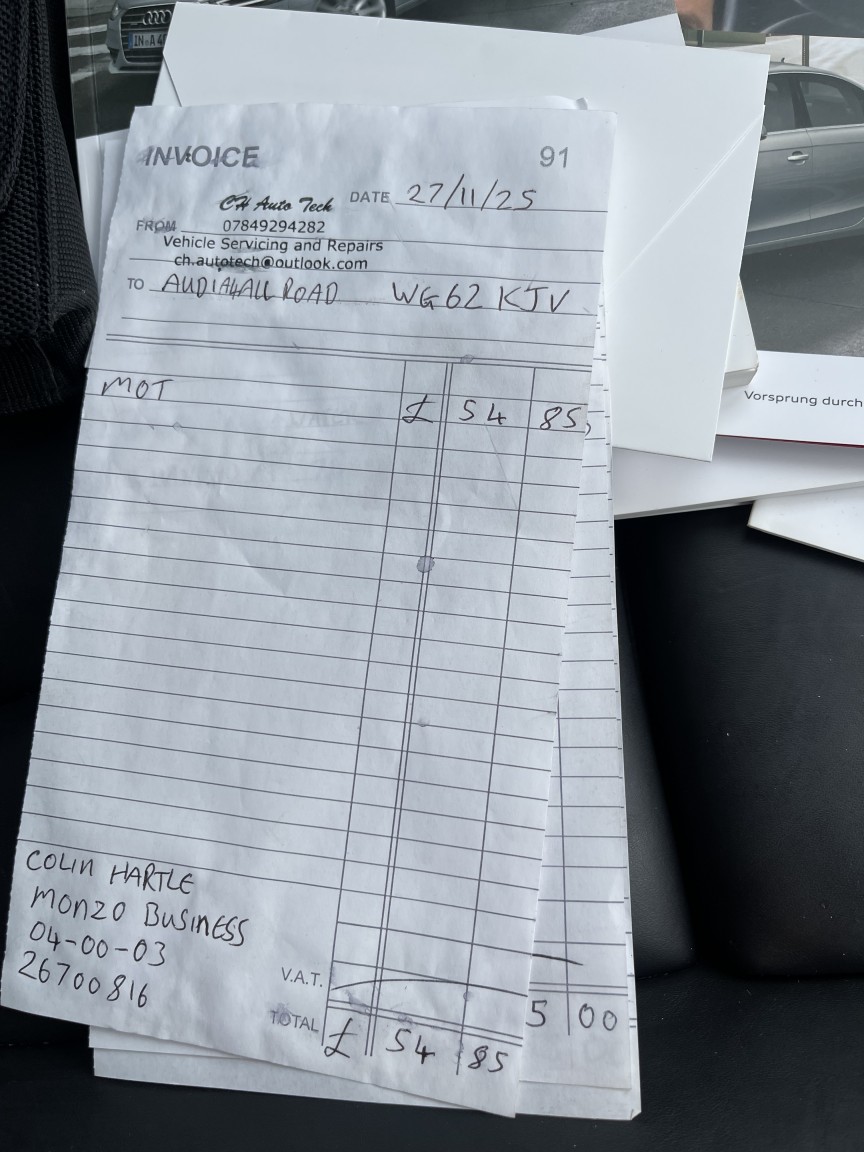 IN·A4
INVOICE 91
CH Auto Tech DATE 27/11/25
FROM 07849294282
Vehicle Servicing and Repairs
ch.autotech@outlook.com
TO AUDI A4 ALL ROAD WG62 KJV
MOT
£ 54 85
Vorsprung durch
COLIN HARTLE
MONZO BUSINESS
04-00-03
26700816
V.A.T.
5 00
TOTAL £ 54 85